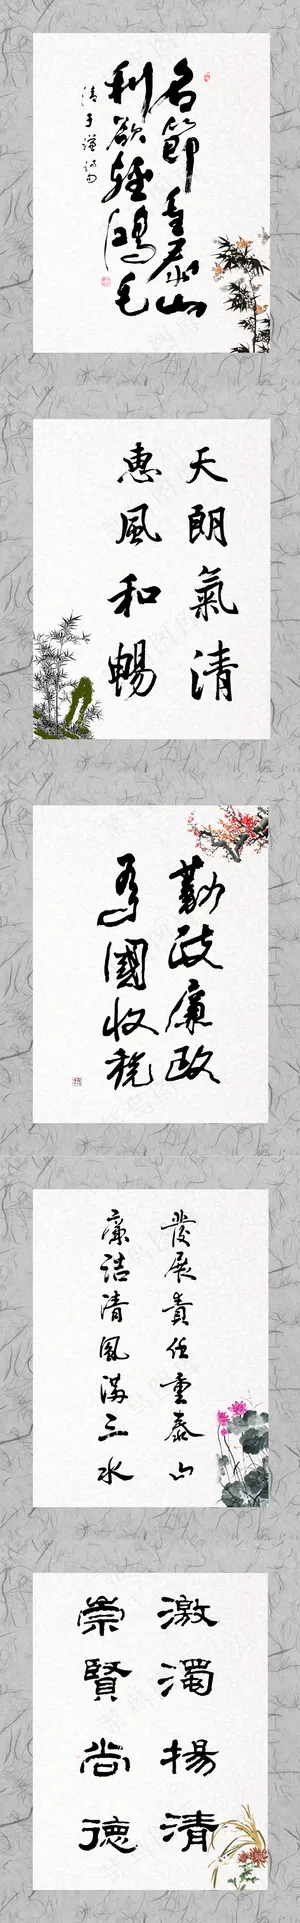 名節重泰山
利欲輕鴻毛
清于謙詩句
天朗氣清
惠風和暢
勤政廉政
為國收税
發展責任重泰山
廉洁清風滿三水
激濁揚清
崇賢尚德